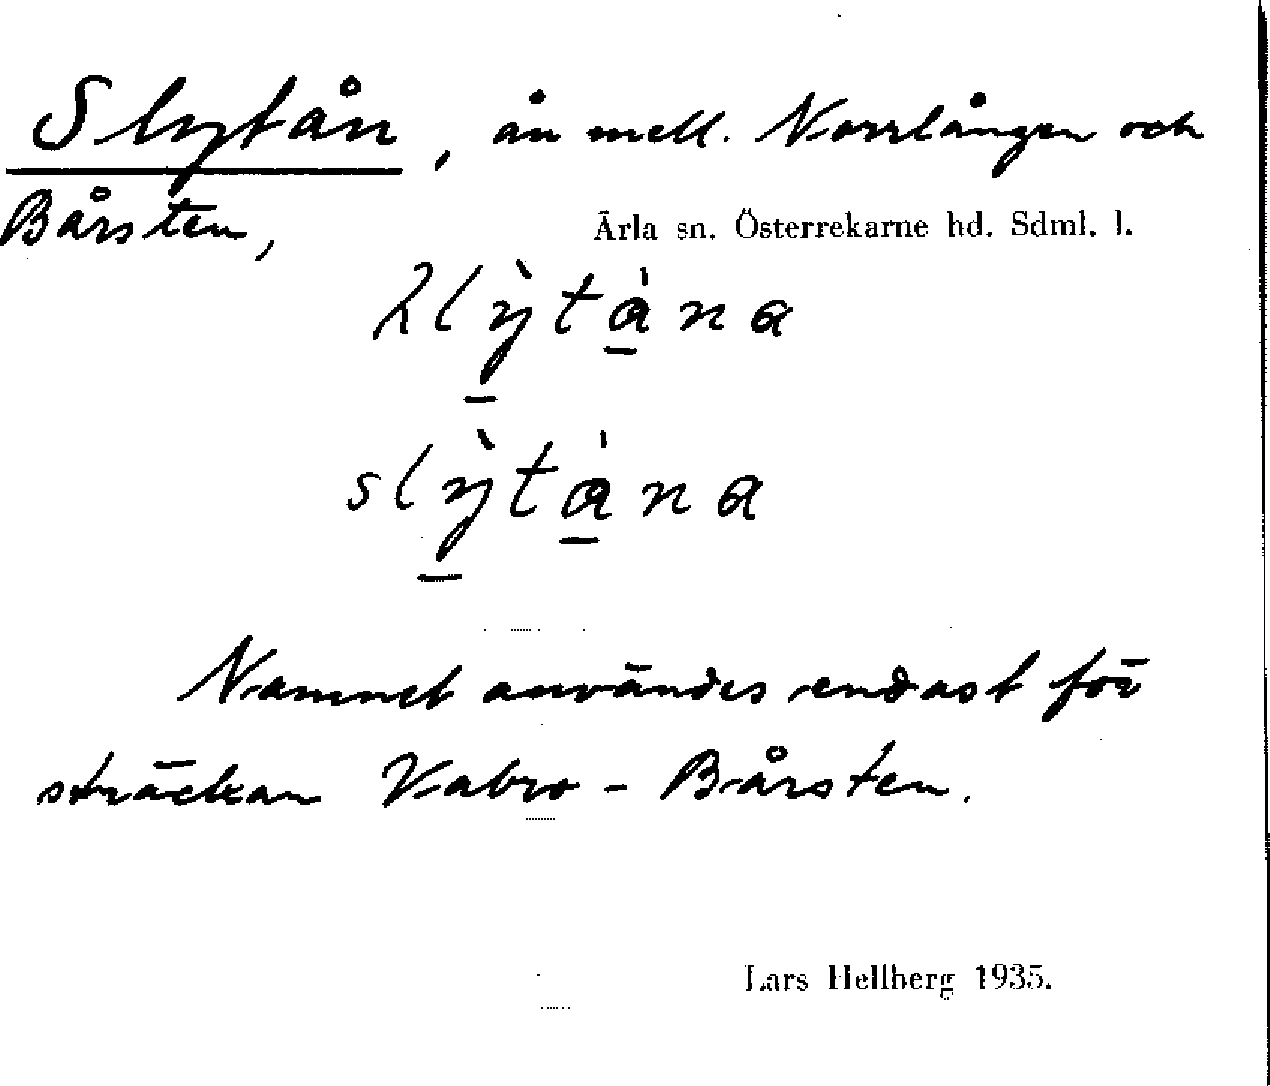 Slytån, ån mell. Norrlången och
Bårsten,
Ärla sn. Österrekarne hd. Sdml. l.
slỳtåna
Namnet användes endast för
sträckan Vabro - Bårsten.
Lars Hellberg 1935.